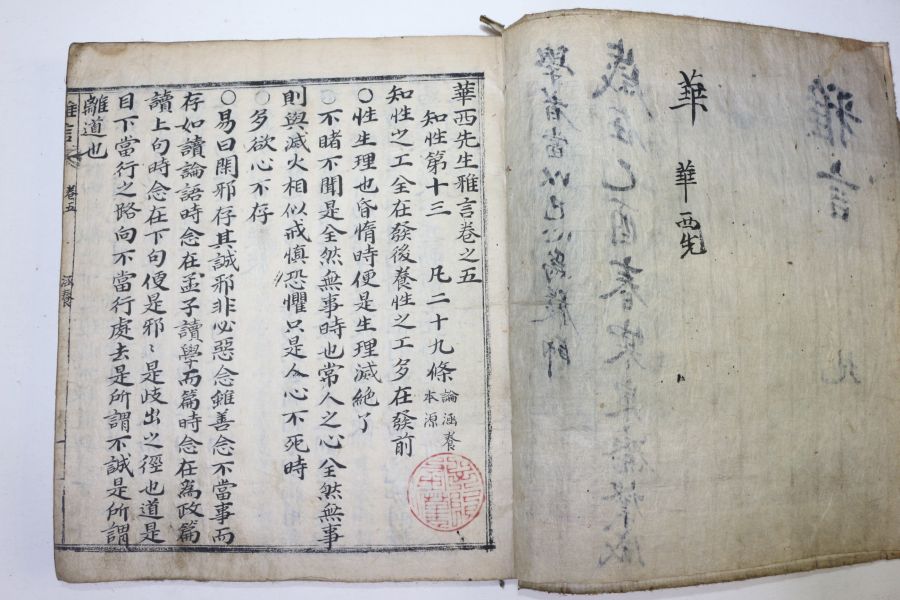 華
華西先
華西先生雅言卷之五
知性第十三 凡二十九條 論涵養本源
知性之工全在發後養性之工多在發前
○性生理也昏惰時便是生理滅絶了
○不睹不聞是全然無事時也常人之心全然無事
則與滅火相似戒慎恐懼只是人心不死時
○多欲心不存
○易曰閑邪存其誠邪非必惡念雖善念不當事而
存如讀論語時念在孟子讀學而篇時念在爲政篇
讀上句時念在下句便是邪〻是歧出之徑也道是
目下當行之路向不當行處去是所謂不誠是所謂
離道也
雅言 卷五 涵養